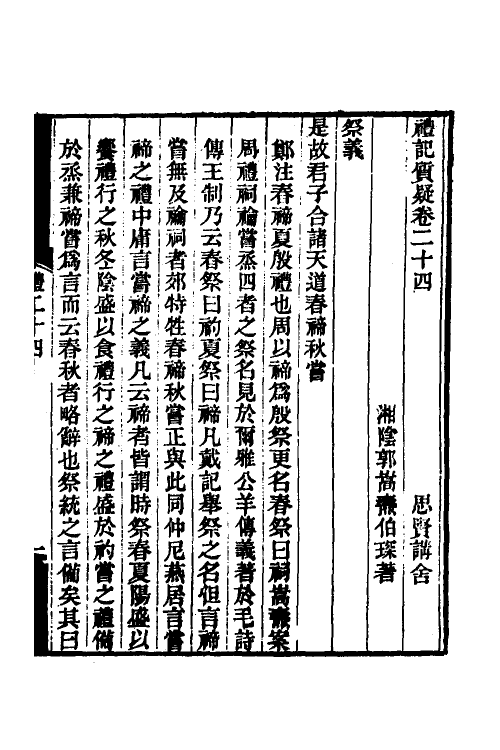 禮記質疑卷二十四
思賢講舍
湘陰郭嵩燾伯琛著
祭義
是故君子合諸天道春禘秋嘗
鄭注春禘夏殷禮也周以禘爲殷祭更名春祭曰祠嵩燾案
周禮祠禴嘗烝四者之祭名見於爾雅公羊傳義著於毛詩
傳王制乃云春祭曰礿夏祭曰禘凡戴記舉祭之名但言禘
嘗無及禴祠者郊特牲春禘秋嘗正與此同仲尼燕居言嘗
禘之禮中庸言嘗禘之義凡云禘者皆謂時祭春夏陽盛以
饗禮行之秋冬陰盛以食禮行之禘之禮盛於礿嘗之禮備
於烝兼禘嘗爲言而云春秋者略辭也祭統之言備矣其曰
禮二十四
一